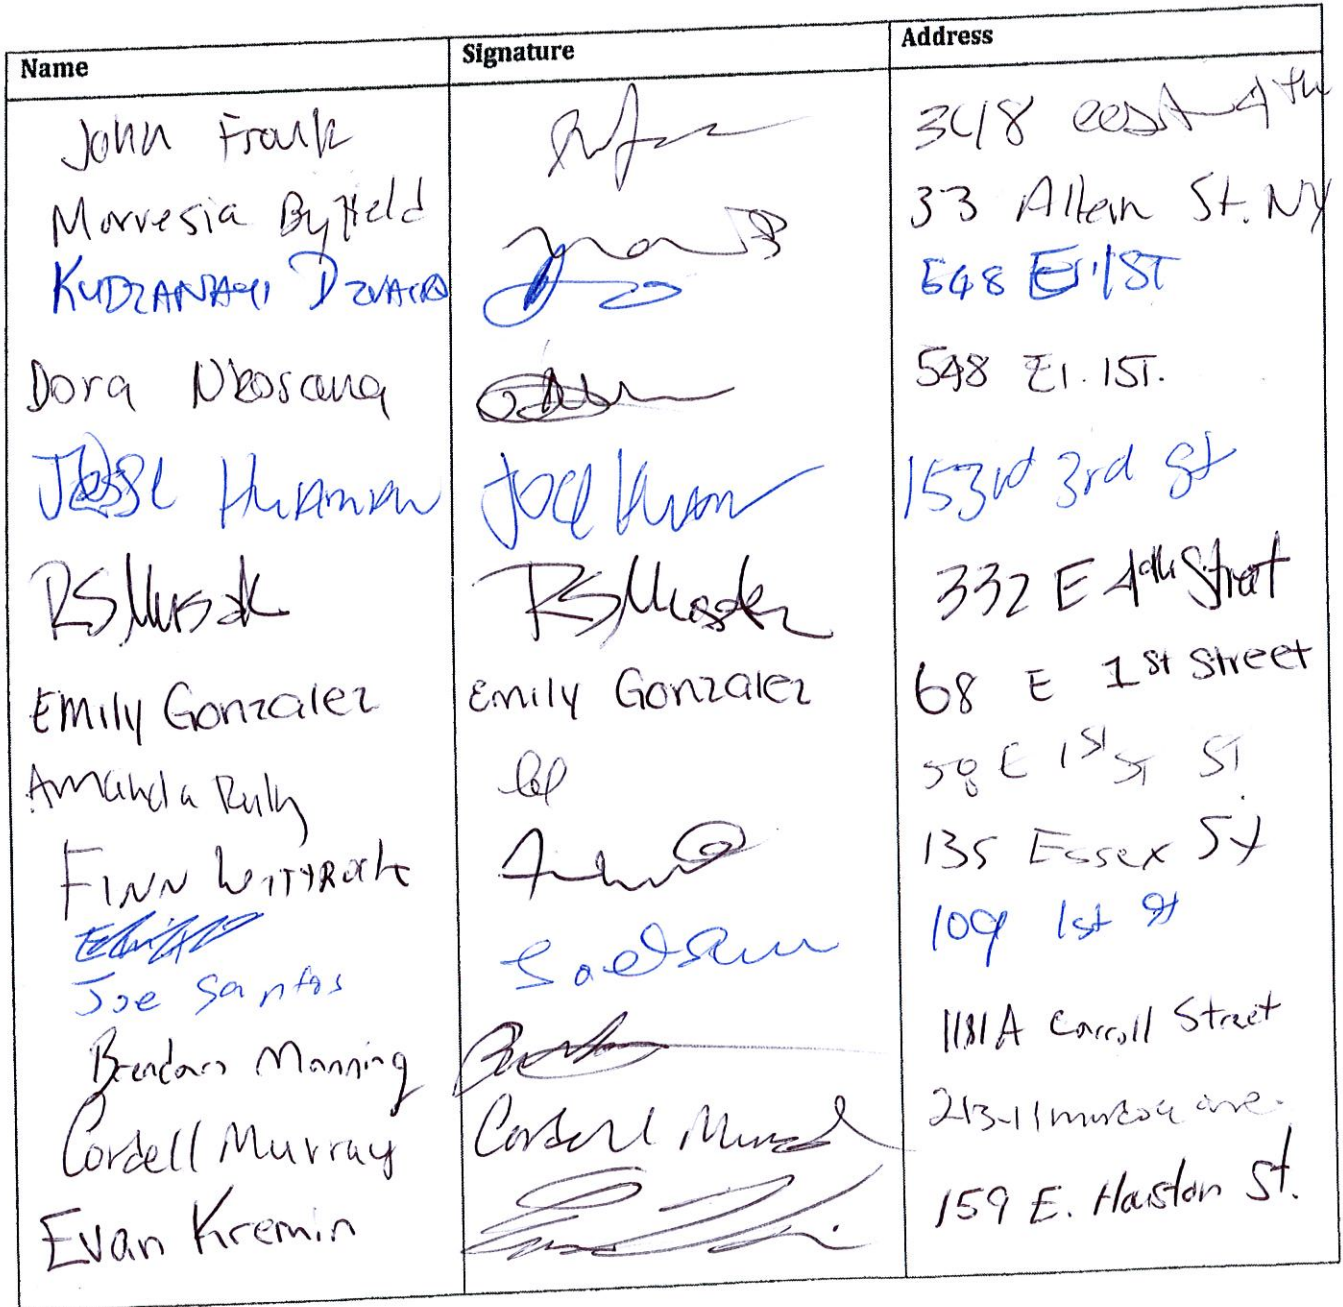 Name Signature Address
John Frank 348 east 4th
Morvesia Byfield 33 Allen St. NY
KUDZANAYI 548 E 1ST
Dora Nkosana 548 E1. 1ST.
Jesse 153rd 3rd st
RSMussak RSMussak 332 E 4th Street
Emily Gonzalez Emily Gonzalez 68 E 1st Street
Amanda 58 E 1st ST ST
FINN WITTROCK 135 Essex St
109 1st st
Joe Santos
Brendan Manning 1181A Carroll Street
Cordell Murray Cordell 213-11 ave.
Evan Kremin 159 E. Houston St.